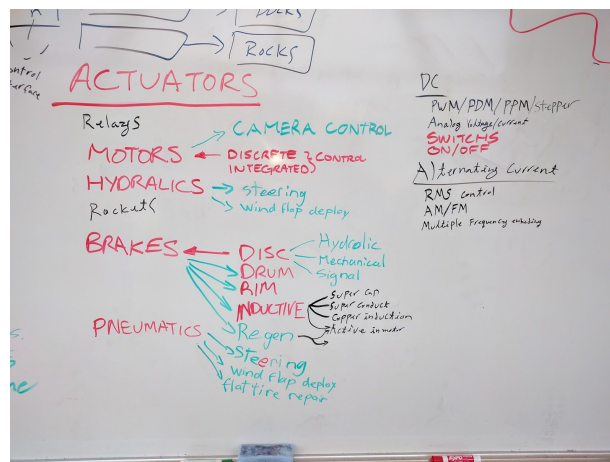 ROCKS
ACTUATORS
Relays
CAMERA CONTROL
MOTORS
DISCRETE } CONTROL
INTEGRATED)
HYDRALICS
steering
Wind flap deploy
BRAKES
DISC
Hydrolic
Mechanical
Signal
DRUM
RIM
INDUCTIVE
Super Cap
Super Conduct
Copper induction
Regen
Active in motor
PNEUMATICS
Steering
Wind flap deploy
flat tire repair
DC
PWM/PDM/PPM/stepper
Analog Voltage/Current
SWITCHS
ON/OFF
Alternating Current
RMS Control
AM/FM
Multiple Frequency embeding